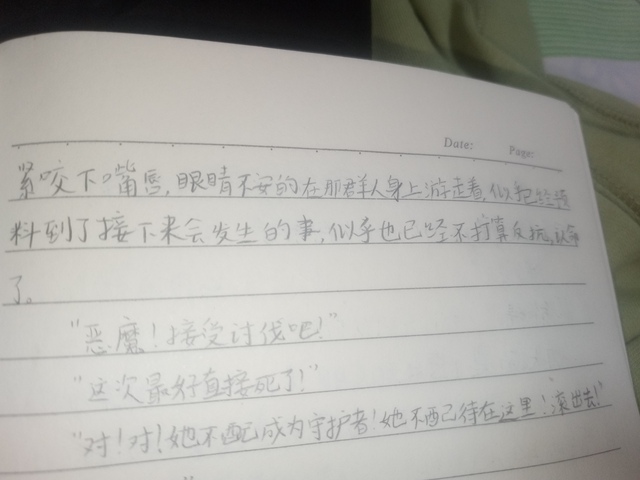 Date: Page:
紧咬下嘴唇,眼睛不安的在那群人身上游走着,似乎已经预
料到了接下来会发生的事,似乎也已经不打算反抗,认命
了。
"恶魔!接受讨伐吧!"
"这次最好直接死了!"
"对!对!她不配成为守护者!她不配待在这里!滚出去!"